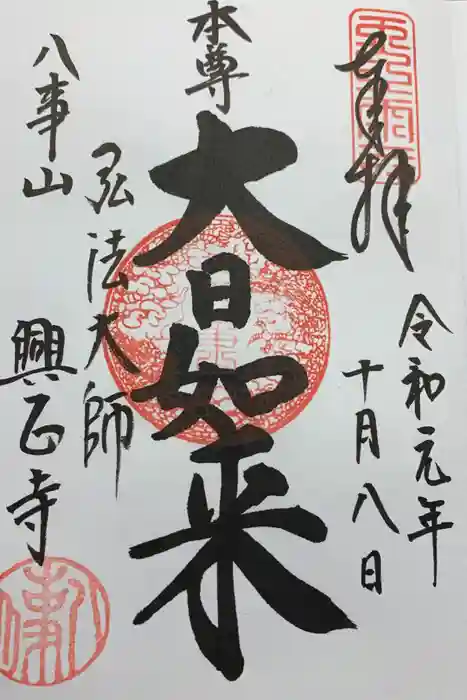 奉拝
令和元年
十月八日
本尊
大日如来
弘法大師
八事山
興正寺
八事